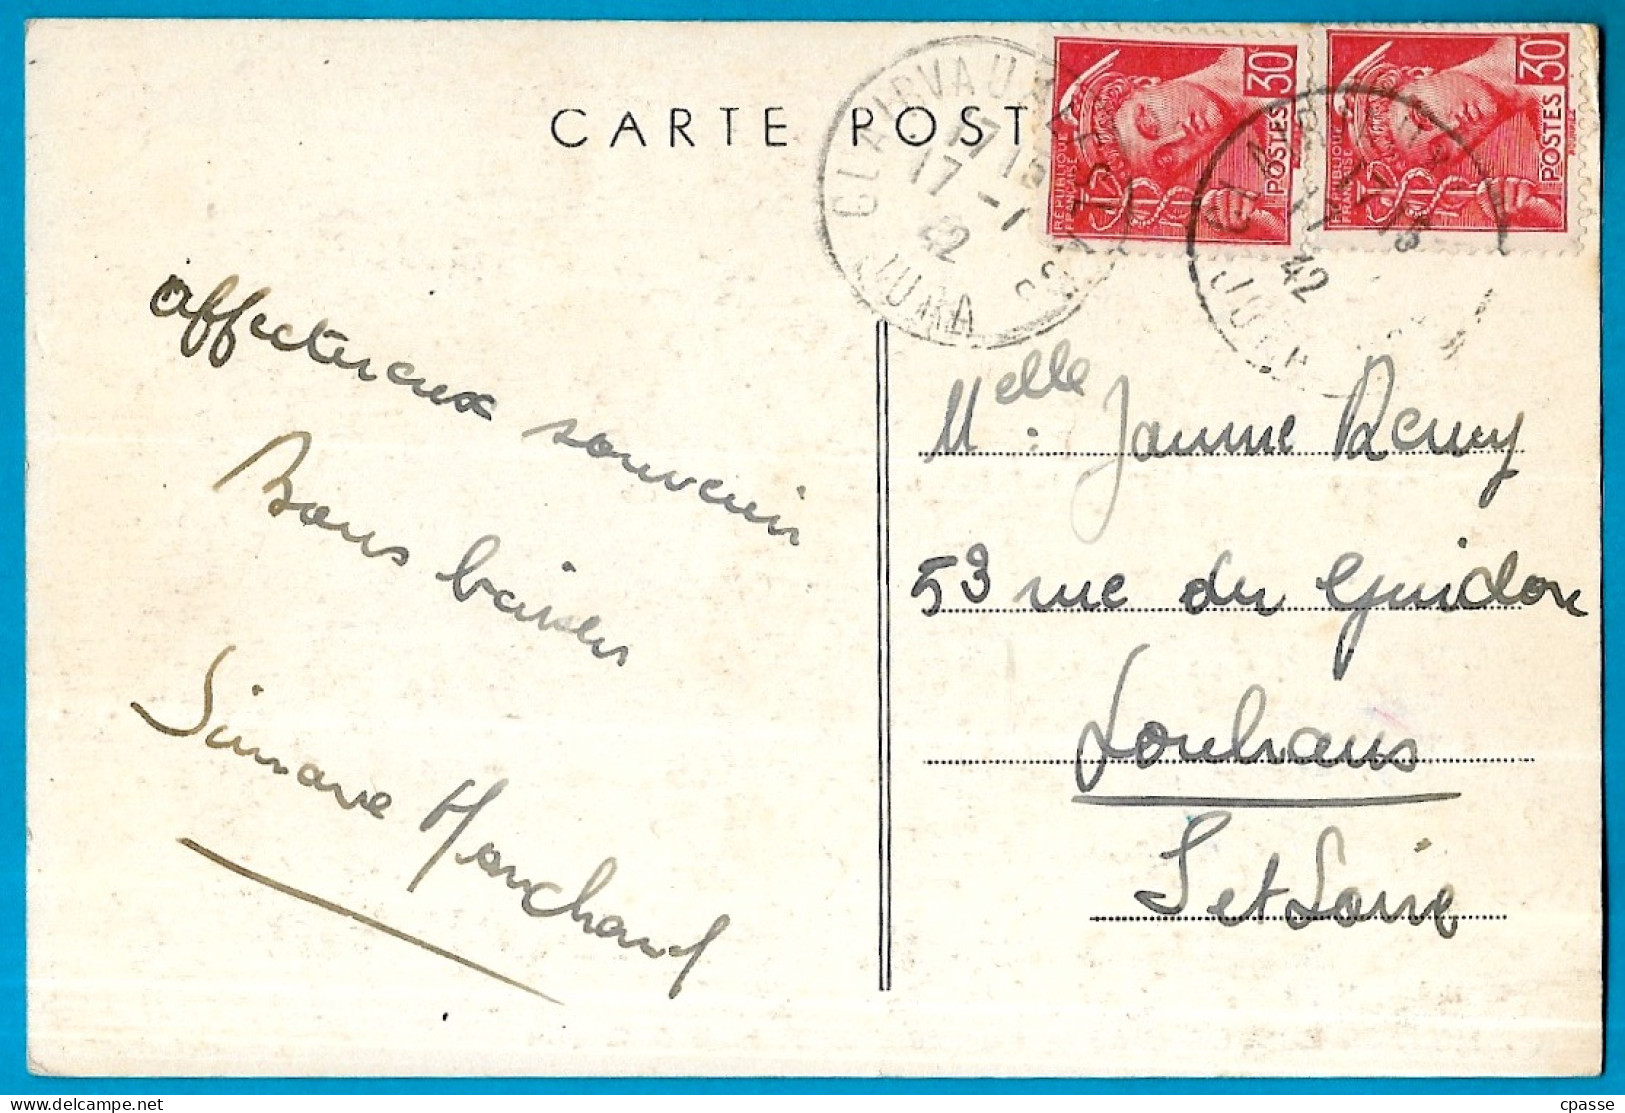 CARTE POST
CLAIRVAUX
17 15
17 -1
42
JURA
30c
POSTES
RÉPUBLIQUE
FRANÇAISE
30c
POSTES
RÉPUBLIQUE
FRANÇAISE
42
JURA
Affectueux souvenir
Bons baisers
Simone Marchand
Melle Jeanne Remy
53 rue du Guidon
Louhans
S et Loire
cpasse
delcampe.net